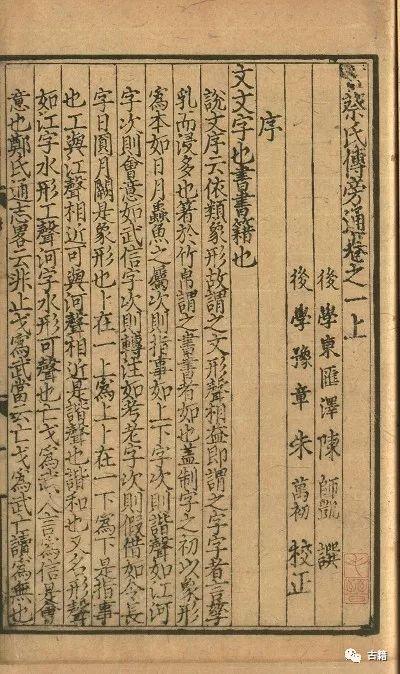 蔡氏傳旁通卷之一上
後學東匯澤陳師凱譔
後學豫章朱萬初校正
序
文文字也書書籍也
說文序云依類象形故謂之文形聲相益即謂之字字者言孳
乳而浸多也著於竹帛謂之書書者如也盖制字之初以象形
為本如日月蟲魚之屬次則指事如上下字次則諧聲如江河
字次則會意如武信字次則轉注如考老字次則假借如令長
字日圓月闕象形也卜在一上為上卜在一下為下是指事
也工與江聲相近可與河聲相近是諧聲也諧和也又名形聲
如江字水形工聲河字水形可聲也戈為武人言為信是會
意也鄭氏通志畧云非止戈為武當云亡戈為武亡讀為無也
古籍